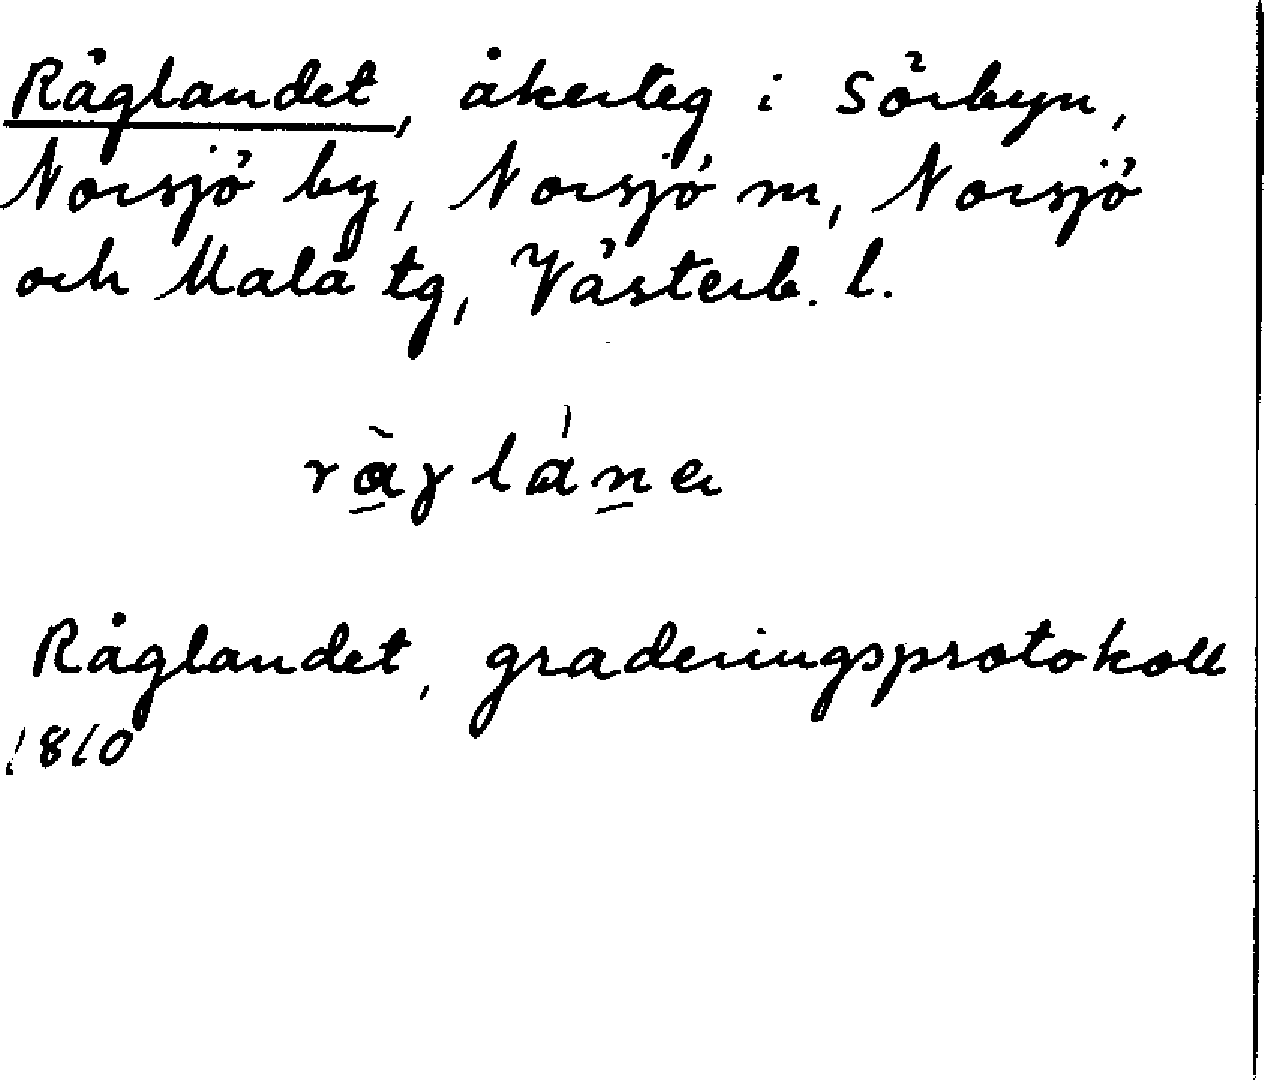 Råglandet, åkerteg i Sörbyn,
Norsjö by, Norsjö m, Norsjö
och Malå tg, Västerb. l.
Råglandet, graderingsprotokoll
1810